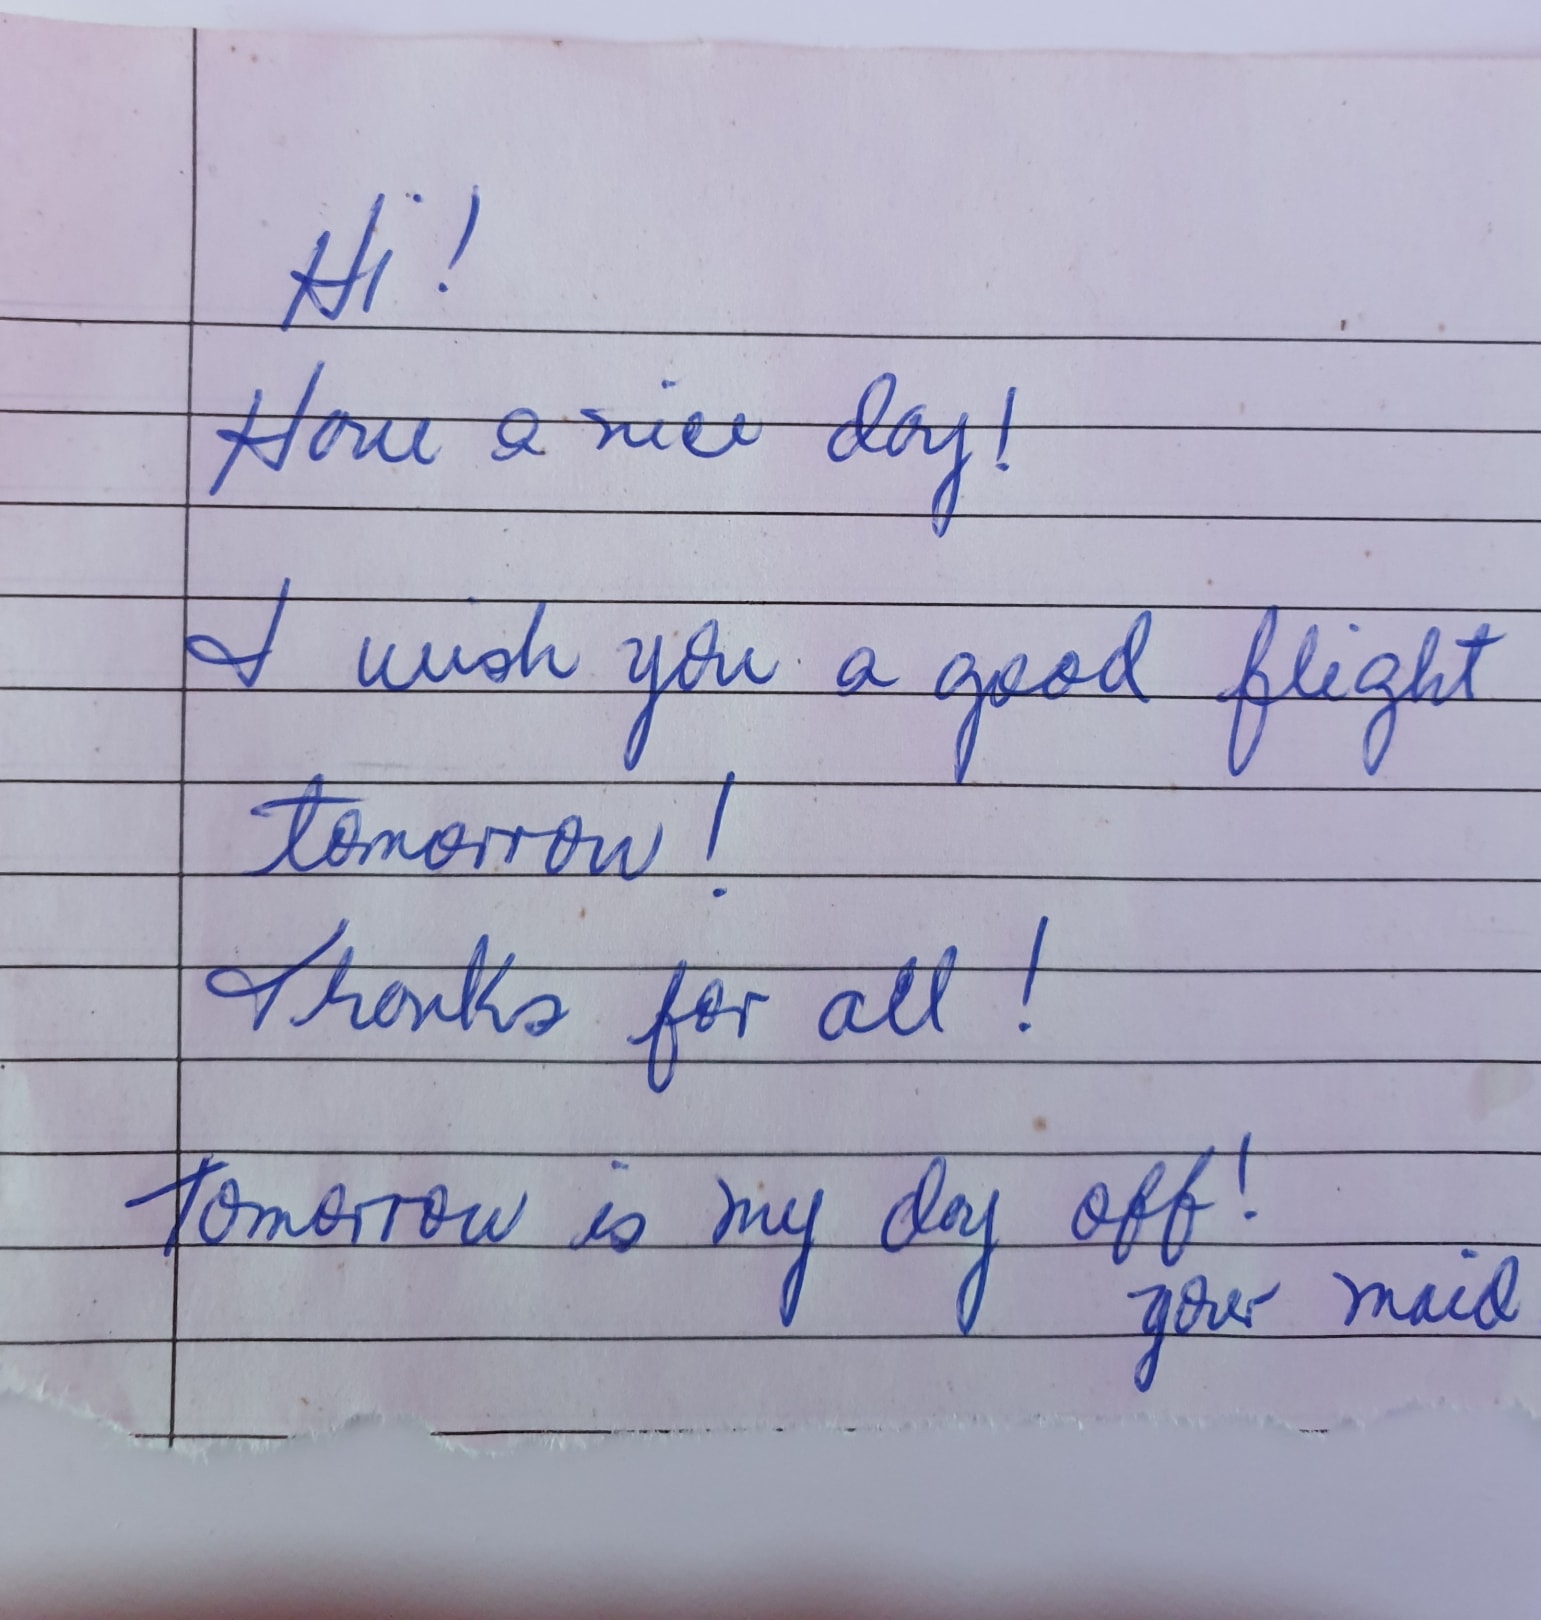 Hi!
Have a nice day!
I wish you a good flight
tomorrow!
Thanks for all!
Tomorrow is my day off!
your maid